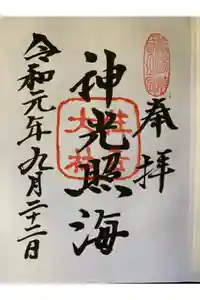 奉拝
神光照海
令和元年九月二十二日